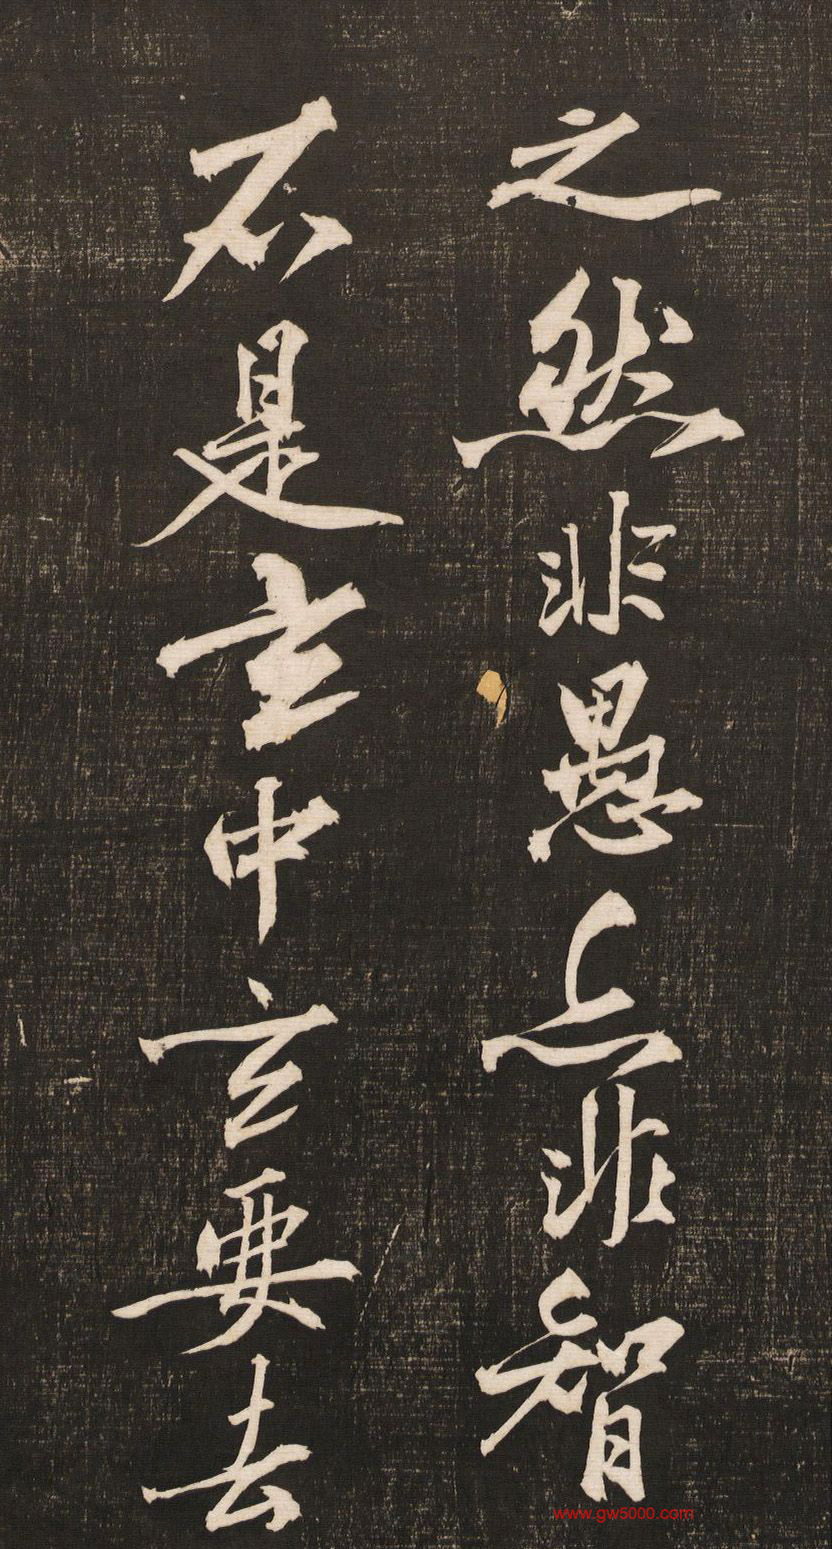 之然非愚亦非智
不是玄中玄要去
www.gw5000.com